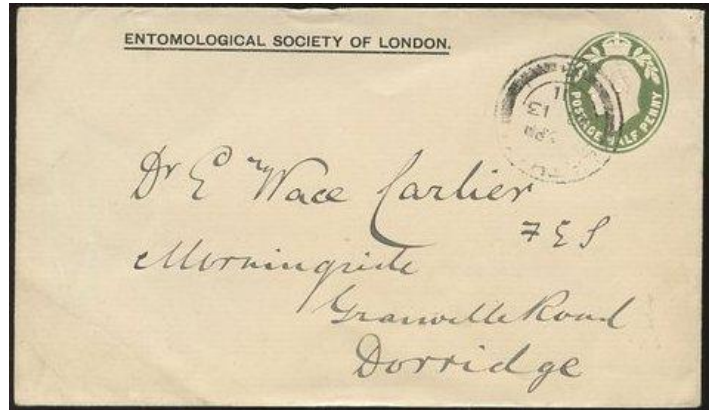 ENTOMOLOGICAL SOCIETY OF LONDON.
POSTAGE HALF PENNY
13
11
PM
Dr E. Wace Carlier
F E S
Morningside
Granville Road
Dorridge